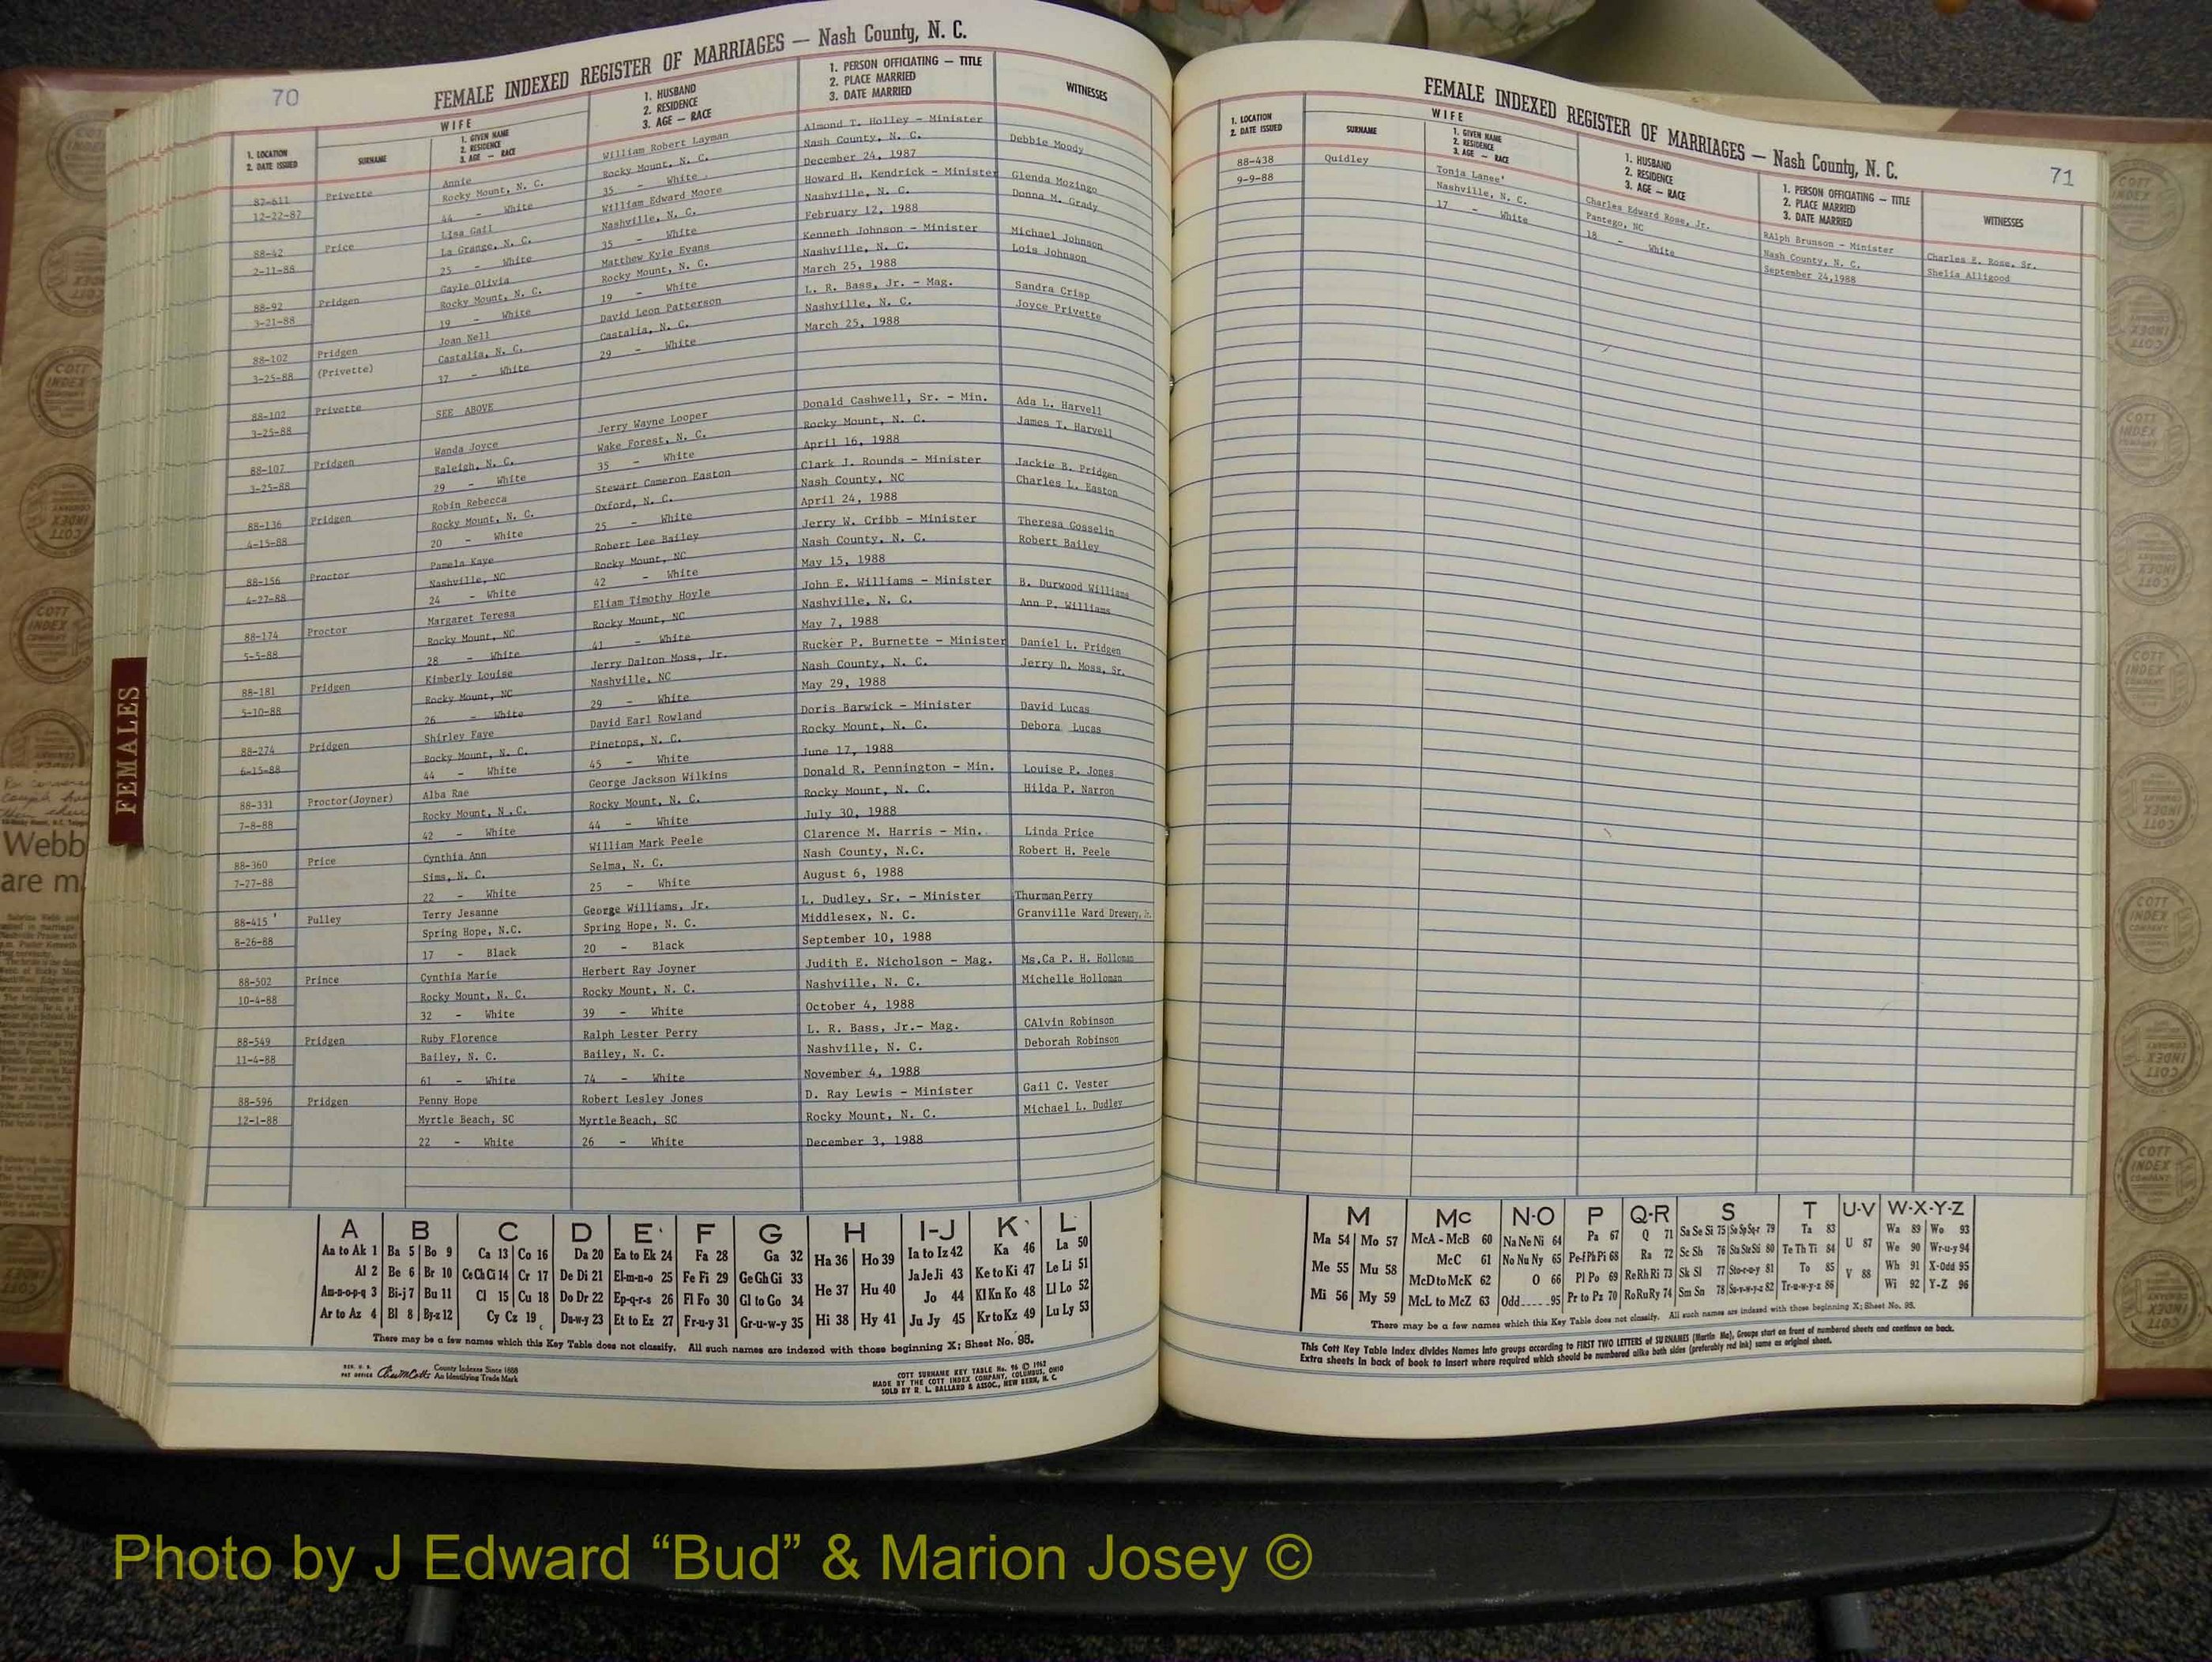 70
FEMALE INDEXED REGISTER OF MARRIAGES — Nash County, N. C.
1. LOCATION
2. DATE ISSUED
SURNAME
WIFE
1. GIVEN NAME
2. RESIDENCE
3. AGE — RACE
1. HUSBAND
2. RESIDENCE
3. AGE — RACE
1. PERSON OFFICIATING — TITLE
2. PLACE MARRIED
3. DATE MARRIED
WITNESSES
87-611 Privette Annie William Robert Layman Almond T. Holley - Minister Debbie Moody
12-22-87 Rocky Mount, N. C. Rocky Mount, N. C. Nash County, N. C.
44 - White 35 - White December 24, 1987
88-42 Price Lisa Gail William Edward Moore Howard H. Kendrick - Minister Glenda Mozingo
2-11-88 La Grange, N. C. Nashville, N. C. Nashville, N. C. Donna M. Grady
25 - White 35 - White February 12, 1988
88-92 Pridgen Gayle Olivia Matthew Kyle Evans Kenneth Johnson - Minister Michael Johnson
3-21-88 Rocky Mount, N. C. Rocky Mount, N. C. Nashville, N. C. Lois Johnson
19 - White 19 - White March 25, 1988
88-102 Pridgen Joan Nell David Leon Patterson L. R. Bass, Jr. - Mag. Sandra Crisp
3-25-88 (Privette) Castalia, N. C. Castalia, N. C. Nashville, N. C. Joyce Privette
37 - White 29 - White March 25, 1988
88-102 Privette SEE ABOVE
3-25-88
88-107 Pridgen Wanda Joyce Jerry Wayne Looper Donald Cashwell, Sr. - Min. Ada L. Harvell
3-25-88 Raleigh, N. C. Wake Forest, N. C. Rocky Mount, N. C. James T. Harvell
29 - White 35 - White April 16, 1988
88-136 Pridgen Robin Rebecca Stewart Cameron Easton Clark J. Rounds - Minister Jackie B. Pridgen
4-15-88 Rocky Mount, N. C. Oxford, N. C. Nash County, NC Charles L. Easton
20 - White 25 - White April 24, 1988
88-156 Proctor Pamela Kaye Robert Lee Bailey Jerry W. Cribb - Minister Theresa Gosselin
4-27-88 Nashville, NC Rocky Mount, NC Nash County, N. C. Robert Bailey
24 - White 42 - White May 15, 1988
88-174 Proctor Margaret Teresa Eliam Timothy Hoyle John E. Williams - Minister B. Durwood Williams
5-5-88 Rocky Mount, NC Rocky Mount, NC Nashville, N. C. Ann P. Williams
28 - White 41 - White May 7, 1988
88-181 Pridgen Kimberly Louise Jerry Dalton Moss, Jr. Rucker P. Burnette - Minister Daniel L. Pridgen
5-10-88 Rocky Mount, NC Nashville, NC Nash County, N. C. Jerry D. Moss, Sr.
26 - White 29 - White May 29, 1988
88-274 Pridgen Shirley Faye David Earl Rowland Doris Barwick - Minister David Lucas
6-15-88 Rocky Mount, N. C. Pinetops, N. C. Rocky Mount, N. C. Debora Lucas
44 - White 45 - White June 17, 1988
88-331 Proctor(Joyner) Alba Rae George Jackson Wilkins Donald R. Pennington - Min. Louise P. Jones
7-8-88 Rocky Mount, N.C. Rocky Mount, N. C. Rocky Mount, N. C. Hilda P. Narron
42 - White 44 - White July 30, 1988
88-360 Price Cynthia Ann William Mark Peele Clarence M. Harris - Min. Linda Price
7-27-88 Sims, N. C. Selma, N. C. Nash County, N.C. Robert H. Peele
22 - White 25 - White August 6, 1988
88-415 Pulley Terry Jesanne George Williams, Jr. L. Dudley, Sr. - Minister Thurman Perry
8-26-88 Spring Hope, N.C. Spring Hope, N. C. Middlesex, N. C. Granville Ward Drewery, Jr.
17 - Black 20 - Black September 10, 1988
88-502 Prince Cynthia Marie Herbert Ray Joyner Judith E. Nicholson - Mag. Ms.Ca P. H. Holloman
10-4-88 Rocky Mount, N. C. Rocky Mount, N. C. Nashville, N. C. Michelle Holloman
32 - White 39 - White October 4, 1988
88-549 Pridgen Ruby Florence Ralph Lester Perry L. R. Bass, Jr.- Mag. CAlvin Robinson
11-4-88 Bailey, N. C. Bailey, N. C. Nashville, N. C. Deborah Robinson
61 - White 74 - White November 4, 1988
88-596 Pridgen Penny Hope Robert Lesley Jones D. Ray Lewis - Minister Gail C. Vester
12-1-88 Myrtle Beach, SC Myrtle Beach, SC Rocky Mount, N. C. Michael L. Dudley
22 - White 26 - White December 3, 1988
A B C D E F G H I-J K L
Aa to Ak 1 Ba 5 Bo 9 Ca 13 Co 16 Da 20 Ea to Ek 24 Fa 28 Ga 32 Ha 36 Ho 39 Ia to Iz 42 Ka 46 La 50
Al 2 Be 6 Br 10 Ce Ch Ci 14 Cr 17 De Di 21 El-m-n-o 25 Fe Fi 29 Ge Gh Gi 33 Ja Je Ji 43 Ke to Ki 47 Le Li 51
Am-n-o-p-q 3 Bi-j 7 Bu 11 Cl 15 Cu 18 Do Dr 22 Ep-q-r-s 26 Fl Fo 30 Gl to Go 34 He 37 Hu 40 Jo 44 Kl Kn Ko 48 Ll Lo 52
Ar to Az 4 Bl 8 By-z 12 Cy Cz 19 Du-w-y 23 Et to Ez 27 Fr-u-y 31 Gr-u-w-y 35 Hi 38 Hy 41 Ju Jy 45 Kr to Kz 49 Lu Ly 53
There may be a few names which this Key Table does not classify. All such names are indexed with those beginning X; Sheet No. 95.
County Indexes Since 1888
An Identifying Trade Mark
COTT SURNAME KEY TABLE No. 96 © 1962
MADE BY THE COTT INDEX COMPANY, COLUMBUS, OHIO
SOLD BY R. L. BALLARD & ASSOC., NEW BERN, N. C.
FEMALE INDEXED REGISTER OF MARRIAGES — Nash County, N. C.
71
1. LOCATION
2. DATE ISSUED
SURNAME
WIFE
1. GIVEN NAME
2. RESIDENCE
3. AGE — RACE
1. HUSBAND
2. RESIDENCE
3. AGE — RACE
1. PERSON OFFICIATING — TITLE
2. PLACE MARRIED
3. DATE MARRIED
WITNESSES
88-438 Quidley Tonja Lanee' Charles Edward Rose, Jr. RAlph Brunson - Minister Charles E. Rose, Sr.
9-9-88 Nashville, N. C. Pantego, NC Nash County, N. C. Shelia Alligood
17 - White 18 - White September 24,1988
M Mc N-O P Q-R S T U-V W-X-Y-Z
Ma 54 Mo 57 McA - McB 60 Na Ne Ni 64 Pa 67 Q 71 Sa Se Si 75 So Sp Sq-r 79 Ta 83 Wa 89 Wo 93
Me 55 Mu 58 McC 61 No Nu Ny 65 Pe-f Ph Pi 68 Ra 72 Sc Sh 76 Sta Ste Sti 80 Te Th Ti 84 U 87 We 90 Wr-u-y 94
McD to McK 62 O 66 Pl Po 69 Re Rh Ri 73 Sk Sl 77 Sto-r-u-y 81 To 85 V 88 Wh 91 X-Odd 95
Mi 56 My 59 McL to McZ 63 Odd 95 Pr to Pz 70 Ro Ru Ry 74 Sm Sn 78 Su-v-w-y-z 82 Tr-u-w-y-z 86 Wi 92 Y-Z 96
There may be a few names which this Key Table does not classify. All such names are indexed with those beginning X; Sheet No. 95.
This Cott Key Table Index divides Names into groups according to FIRST TWO LETTERS of SURNAMES (Martin Ma), Groups start on front of numbered sheets and continue on back.
Extra sheets in back of book to insert where required which should be numbered alike both sides (preferably red ink) same as original sheet.
FEMALES
Webb
are m
COTT
INDEX
COMPANY
Photo by J Edward “Bud” & Marion Josey ©